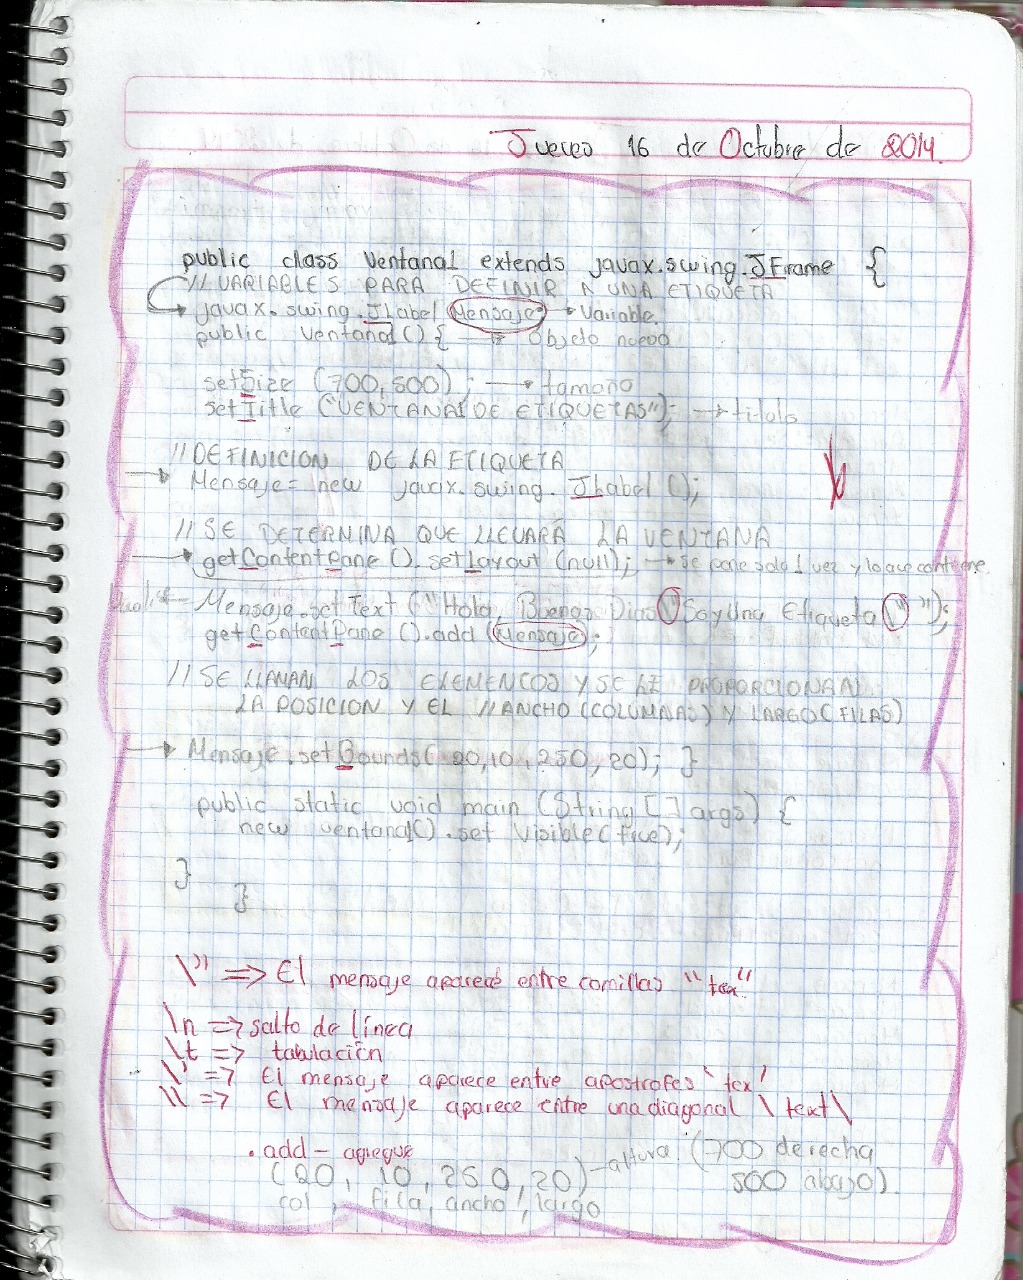 Jueves 16 de Octubre de 2014.
public class Ventana1 extends javax.swing.JFrame {
// VARIABLES PARA DEFINIR A UNA ETIQUETA
javax.swing.JLabel Mensaje; → Variable.
public Ventana1 () { → Objeto nuevo
setSize (700,500) ; → tamaño
setTitle ("VENTANA1 DE ETIQUETAS"); → titulo
// DEFINICION DE LA ETIQUETA
→ Mensaje= new javax.swing. JLabel ();
// SE DETERMINA QUE LLEVARÁ LA VENTANA
→ getContentPane (). setLayout (null); → se pone solo 1 vez y lo que contiene
Mensaje.setText ("Hola Buenos Dias \" Soy Una Etiqueta \" ");
getContentPane ().add (Mensaje);
// SE LLAMAN LOS ELEMENTOS Y SE LE PROPORCIONAN
LA POSICION Y EL // ANCHO (COLUMNAS) Y LARGO (FILAS)
→ Mensaje.setBounds( 20,10, 250, 20); }
public static void main (String [] args) {
new ventana1().set Visible(true);
}
}
\" => El mensaje aparece entre comillas "tex"
\n => salto de línea
\t => tabulación
\' => El mensaje aparece entre apostrofes 'tex'
\\ => El mensaje aparece entre una diagonal \ text \
. add - agregue
(20, 10, 250, 20) - altura. (700 derecha
500 abajo).
col , fila, ancho, largo